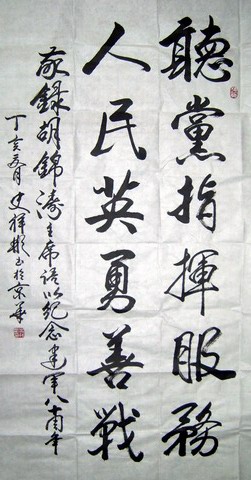 聽黨指揮服務
人民英勇善戰
敬錄胡錦濤主席语以纪念建军八十周年
丁亥五月史揮彬书於京華